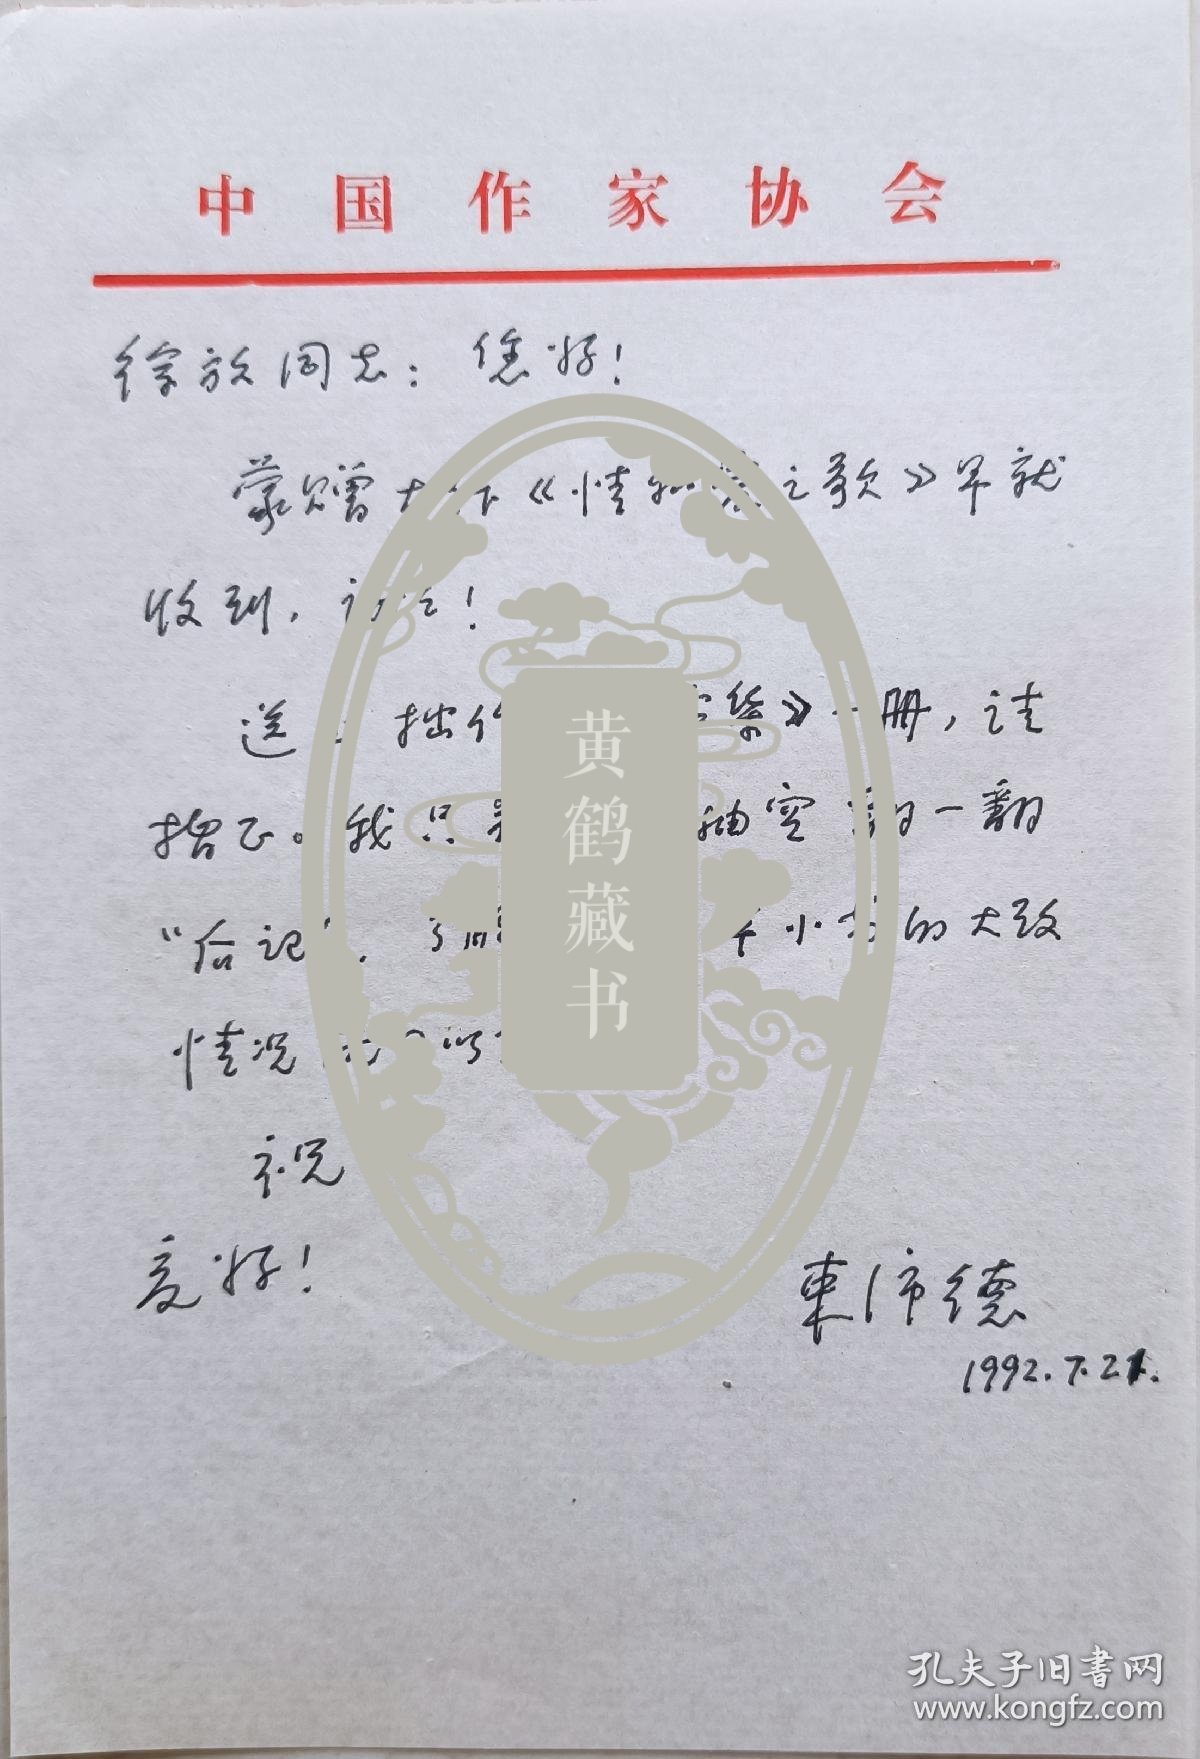 中国作家协会
徐放同志：您好！
蒙赠大作《情和之歌》早就
收到，谢谢！
送上拙作》一册，请
指正。我只抽空翻一翻
“后记”，了解小书的大致
情况可以
祝
夏好！
束沛德
1992.7.21.
黄鹤藏书
孔夫子旧书网
www.kongfz.com